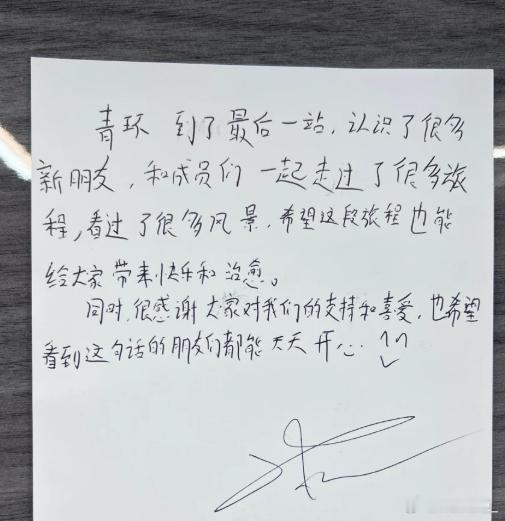 青环 到了最后一站，认识了很多
新朋友，和成员们一起走过了很多旅
程，看过了很多风景，希望这段旅程也能
给大家带来快乐和治愈。
同时，很感谢大家对我们的支持和喜爱，也希望
看到这句话的朋友们都能天天开心